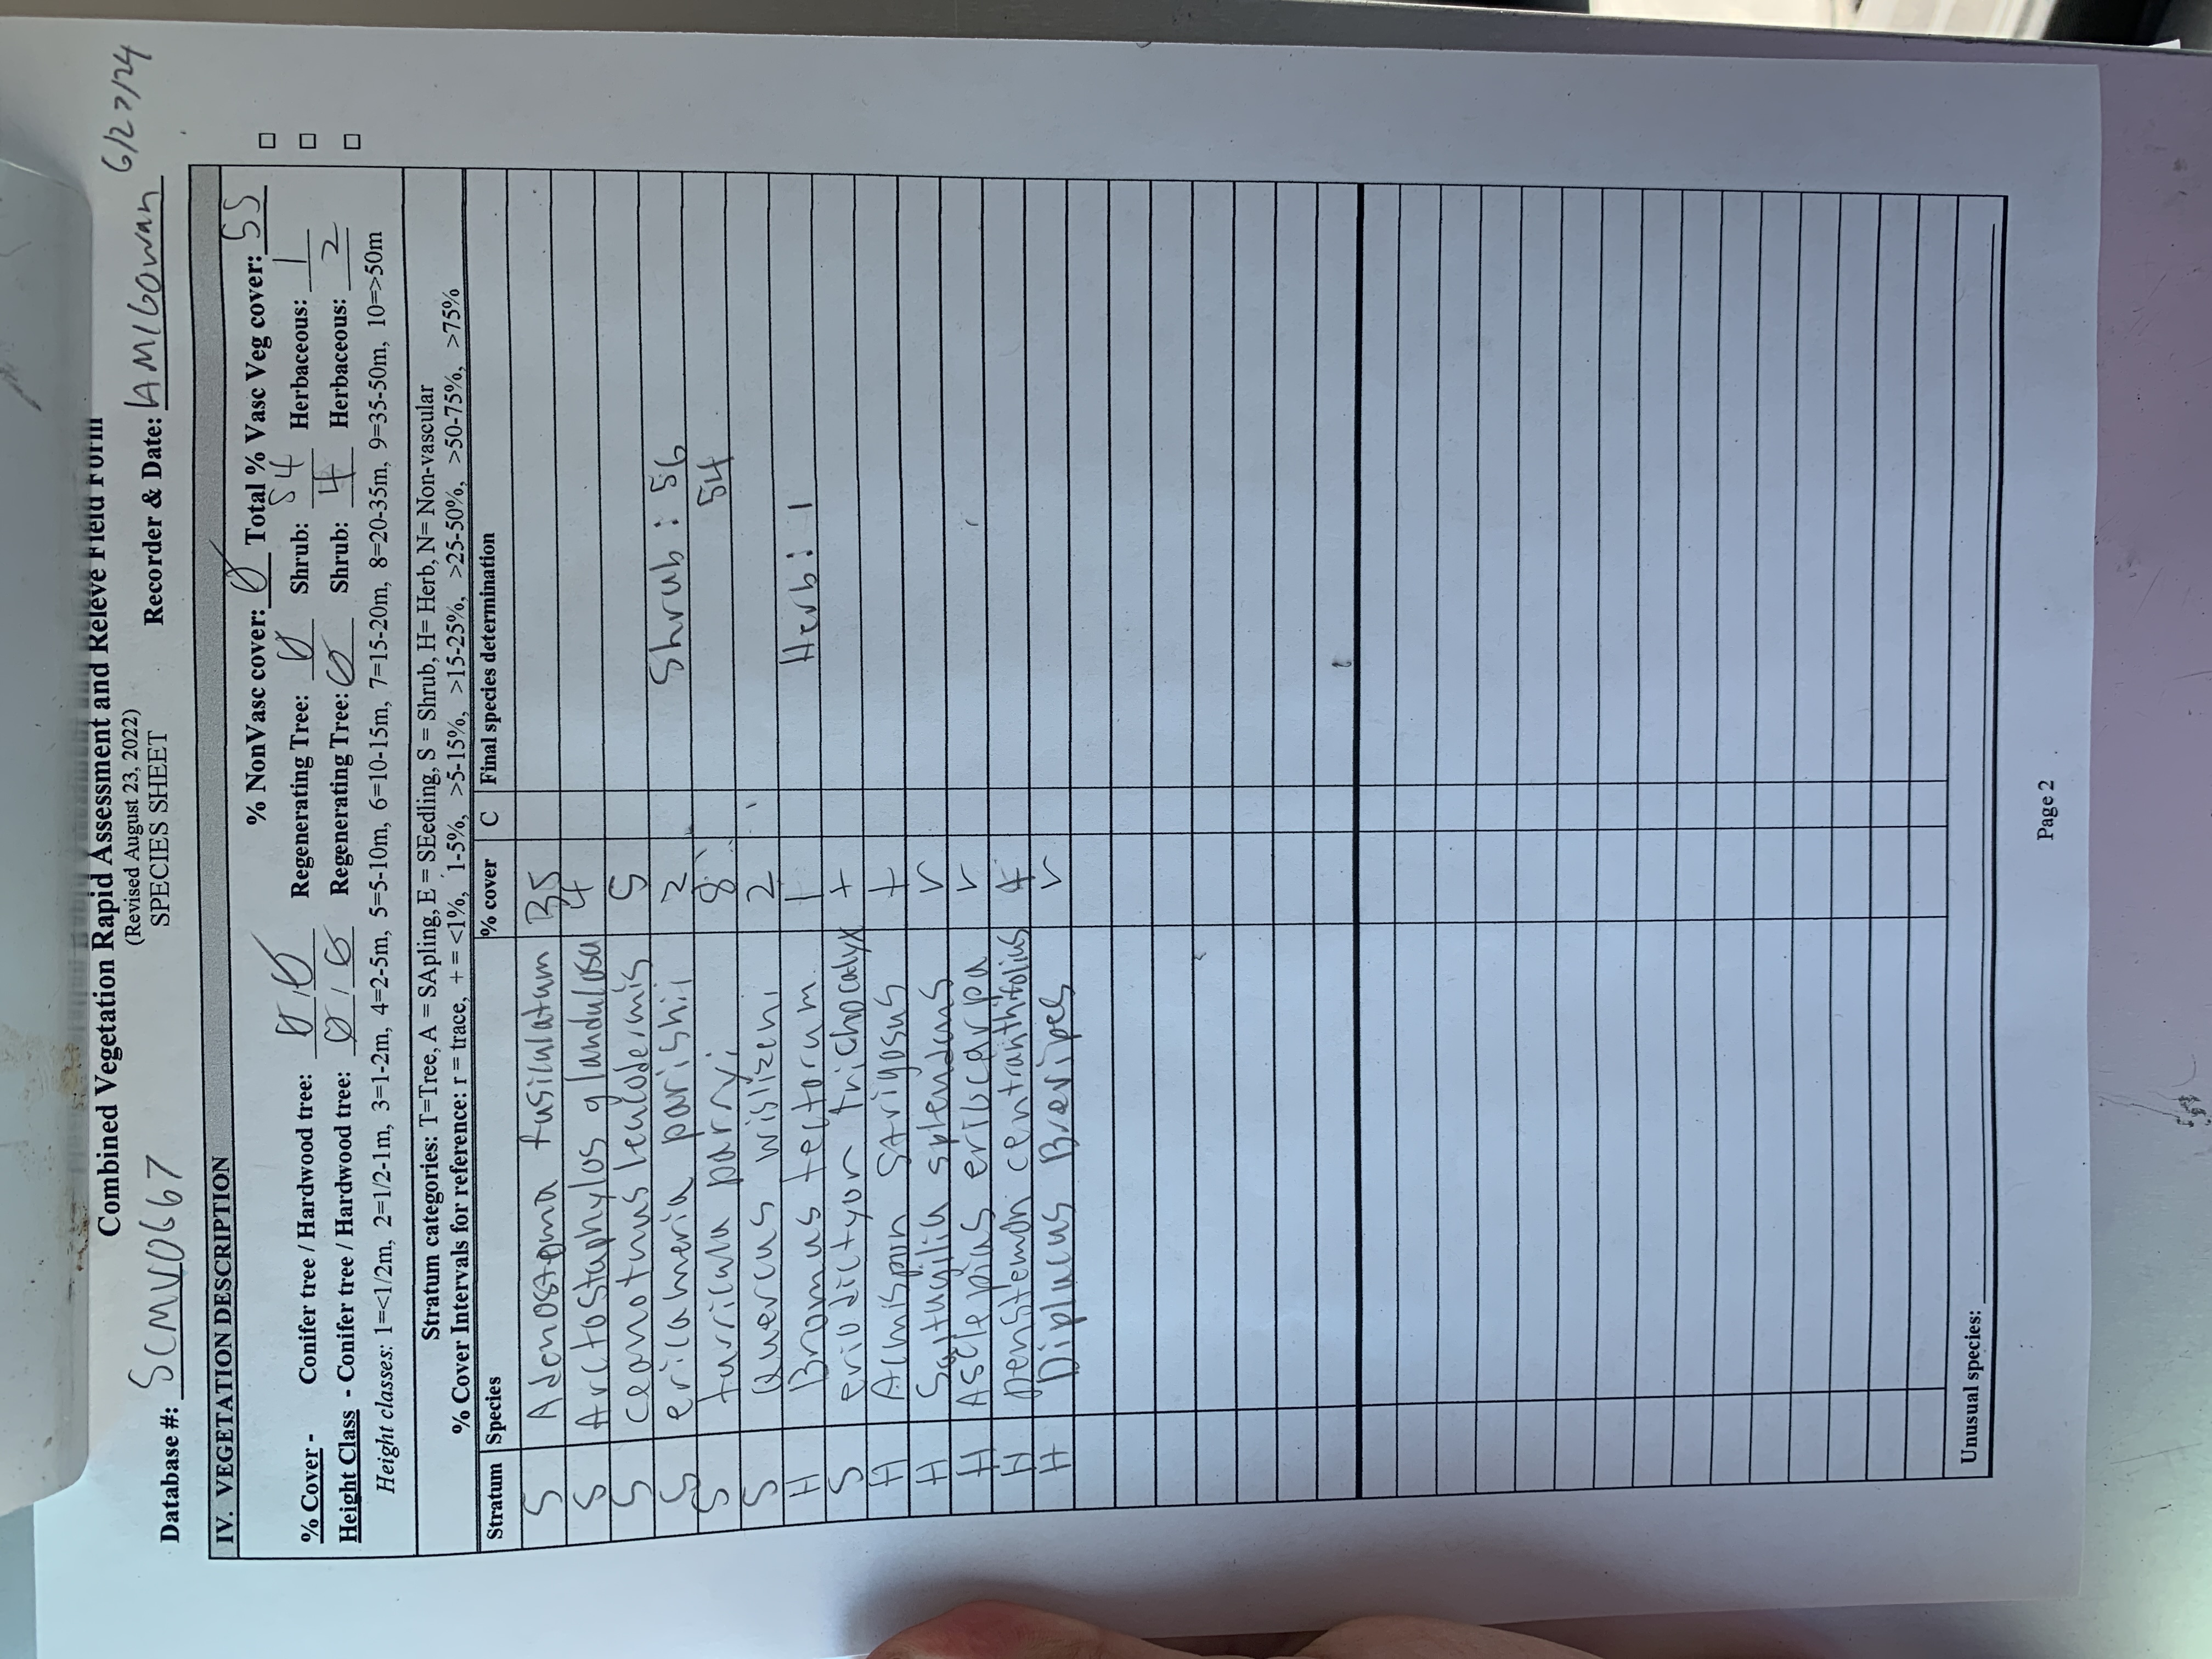 Combined Vegetation Rapid Assessment and Relevé Field Form
(Revised August 23, 2022)
Database #: SCMV0667 SPECIES SHEET Recorder & Date: 6/27/24
IV. VEGETATION DESCRIPTION
% NonVasc cover: Ø Total % Vasc Veg cover: 55 □
% Cover - Conifer tree / Hardwood tree: Ø / Ø Regenerating Tree: Ø Shrub: 54 Herbaceous: 1 □
Height Class - Conifer tree / Hardwood tree: Ø / Ø Regenerating Tree: Ø Shrub: 4 Herbaceous: 2 □
Height classes: 1=<1/2m, 2=1/2-1m, 3=1-2m, 4=2-5m, 5=5-10m, 6=10-15m, 7=15-20m, 8=20-35m, 9=35-50m, 10=>50m
Stratum categories: T=Tree, A = SApling, E = SEedling, S = Shrub, H= Herb, N= Non-vascular
% Cover Intervals for reference: r = trace, + = <1%, 1-5%, >5-15%, >15-25%, >25-50%, >50-75%, >75%
Stratum Species % cover C Final species determination
S Adenostoma fasiculatum 35
S Arctostaphylos glandulosa 4
S Ceanothus leucodermis 5
S ericameria parishii 2 Shrub: 56
S turricula parryi 8 54
S Quercus wislizeni 2
H Bromus tectorum 1 Herb: 1
S eriodictyon trichocalyx +
H Acmispon strigosus +
H splendens r
H Asclepias eriocarpa r
H penstemon centranthifolius +
H Diplacus Brevipes r
Unusual species:
Page 2